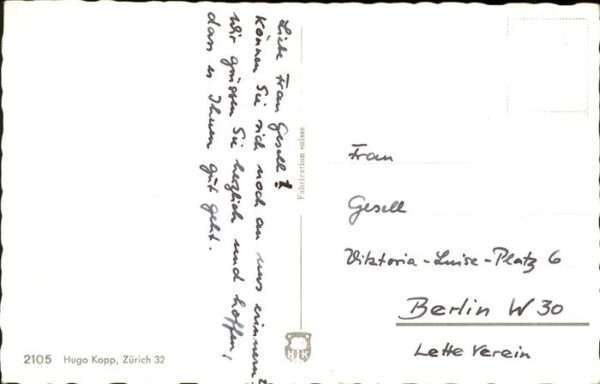 Liebe Frau Gesell!
Können Sie sich noch an uns erinnern?
Wir grüssen Sie herzlich und hoffen,
dass es Ihnen gut geht.
Fabrication suisse
Frau
Gesell
Viktoria-Luise-Platz 6
Berlin W 30
Lette Verein
HK
2105 Hugo Kopp, Zürich 32